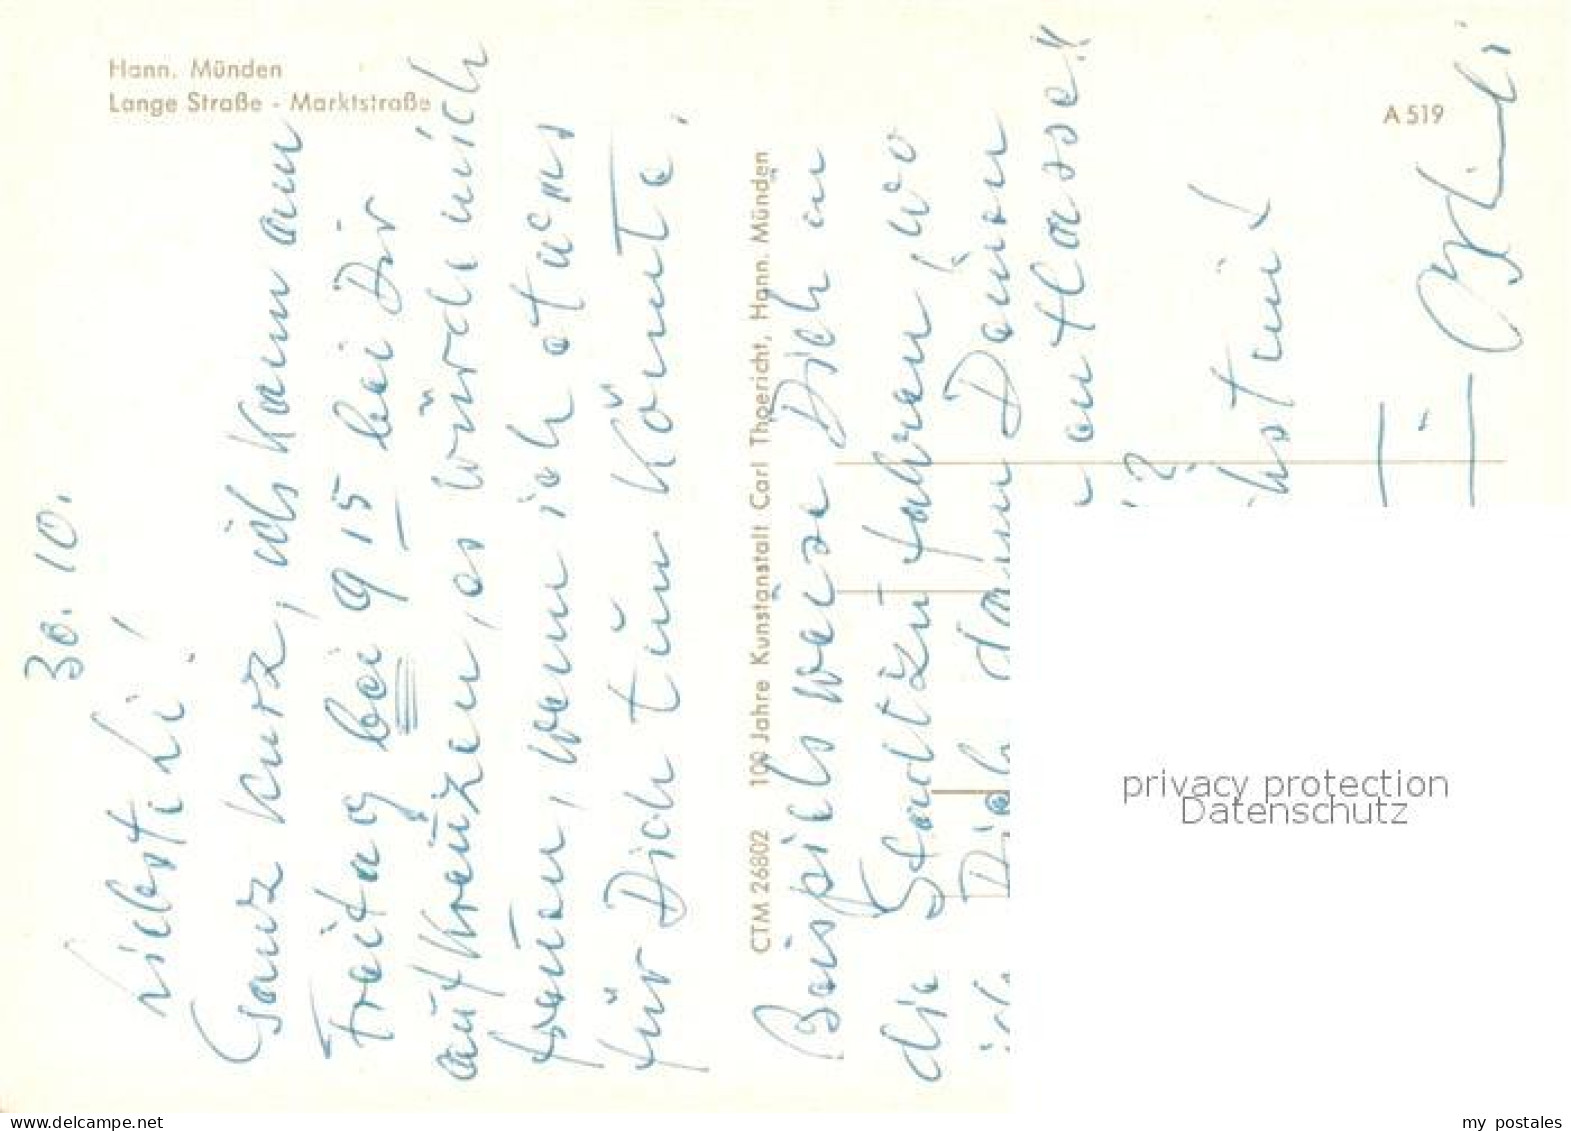 Hann. Münden
Lange Straße - Marktstraße
A 519
CTM 26802 100 Jahre Kunstanstalt Carl Thoericht, Hann. Münden
30. 10.
Liebste Li!
Ganz kurz, ich kann am
Freitag bei 9 15 bei Dir
aufkreuzen, es würde mich
freuen, wenn ich etwas
für Dich tun könnte.
Beispielsweise Dich in
die Stadt zu fahren, wo
ich Dich dann Deinen
entlasse!
?
privacy protection
Datenschutz
my-postales.com
my postales